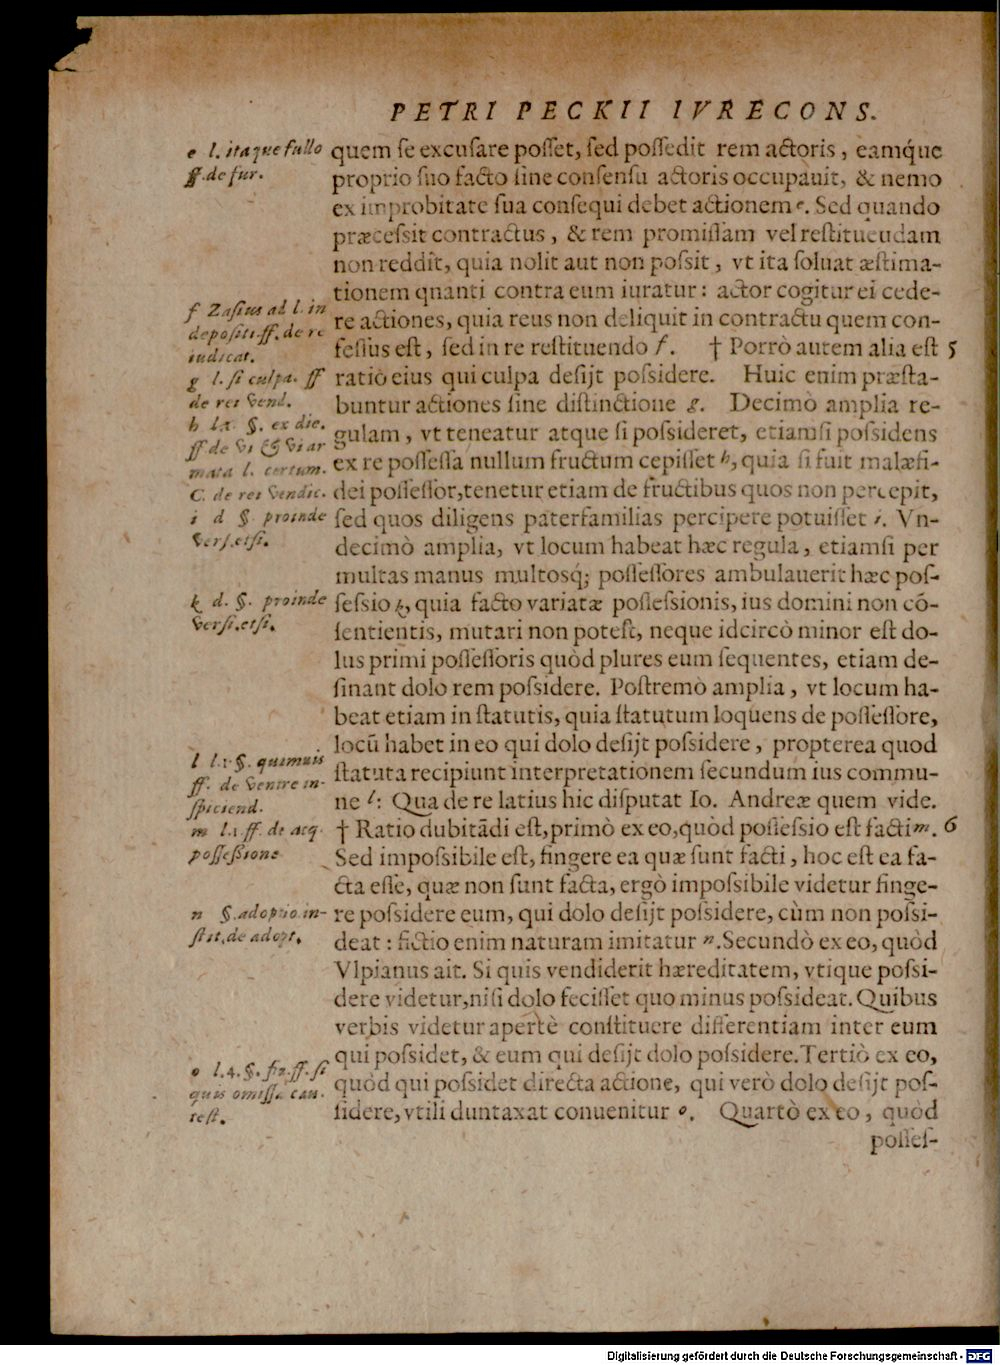 PETRI PECKII IVRECONS.
quem ſe excuſare poſſet, ſed poſſedit rem actoris, eamq́ue
proprio ſuo facto ſine conſenſu actoris occupauit, & nemo
ex improbitate ſua conſequi debet actionem e. Sed quando
præceſsit contractus, & rem promiſſam vel reſtituendam
non reddit, quia nolit aut non poſsit, vt ita ſoluat æſtima-
tionem quanti contra eum iuratur: actor cogitur ei cede-
re actiones, quia reus non deliquit in contractu quem con-
feſſus eſt, ſed in re reſtituendo f. † Porrò autem alia eſt 5
ratio eius qui culpa deſijt poſsidere. Huic enim præſta-
buntur actiones ſine diſtinctione g. Decimò amplia re-
gulam, vt teneatur atque ſi poſsideret, etiamſi poſsidens
ex re poſſeſſa nullum fructum cepiſſet h, quia ſi fuit malæfi-
dei poſſeſſor, tenetur etiam de fructibus quos non percepit,
ſed quos diligens paterfamilias percipere potuiſſet i. Vn-
decimò amplia, vt locum habeat hæc regula, etiamſi per
multas manus multosq́; poſſeſſores ambulauerit hæc poſ-
ſeſsio k, quia facto variatæ poſſeſsionis, ius domini non cõ-
ſentientis, mutari non poteſt, neque idcircò minor eſt do-
lus primi poſſeſſoris quòd plures eum ſequentes, etiam de-
ſinant dolo rem poſsidere. Poſtremò amplia, vt locum ha-
beat etiam in ſtatutis, quia ſtatutum loquens de poſſeſſore,
locũ habet in eo qui dolo deſijt poſsidere, propterea quod
ſtatuta recipiunt interpretationem ſecundum ius commu-
ne l: Qua de re latius hic diſputat Io. Andreæ quem vide.
† Ratio dubitãdi eſt, primò ex eo, quòd poſſeſsio eſt facti m. 6
Sed impoſsibile eſt, fingere ea quæ ſunt facti, hoc eſt ea fa-
cta eſſe, quæ non ſunt facta, ergò impoſsibile videtur finge-
re poſsidere eum, qui dolo deſijt poſsidere, cùm non poſsi-
deat: fictio enim naturam imitatur n. Secundò ex eo, quòd
Vlpianus ait. Si quis vendiderit hæreditatem, vtique poſsi-
dere videtur, niſi dolo feciſſet quo minus poſsideat. Quibus
verbis videtur apertè conſtituere differentiam inter eum
qui poſsidet, & eum qui deſijt dolo poſsidere. Tertiò ex eo,
quòd qui poſsidet directa actione, qui verò dolo deſijt poſ-
ſidere, vtili duntaxat conuenitur o. Quartò ex eo, quòd
poſſeſ-
e l. itaque fullo
ff. de fur.
f Zaſius ad l. in
depoſiti. ff. de re
iudicat.
g l. ſi culpa. ff
de rei vend.
h l.1. §. ex die.
ff de vi & vi ar
mata l. certum.
C. de rei vendic.
i d §. proinde
verſ. etſi.
k d. §. proinde
verſi. etſi.
l l.1. §. quamuis
ff. de ventre in-
ſpiciend.
m l.1 ff. de acq.
poſſeßione
n §. adoptio in-
ſtit. de adopt.
o l.4. §. fi. ff. ſi
quis omiſſa cau.
teſt.
Digitalisierung gefördert durch die Deutsche Forschungsgemeinschaft - DFG